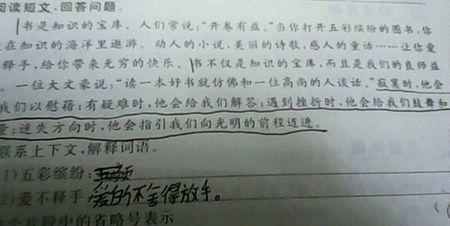 阅读短文,回答问题。
书是知识的宝库。人们常说:“开卷有益。”当你打开五彩缤纷的图书,你
在知识的海洋里遨游。动人的小说,美丽的诗歌,感人的童话……让你爱
释手,给你带来无穷的快乐。书不仅是知识的宝库,而且是我们的良师益
。一位大文豪说:“读一本好书就仿佛和一位高尚的人谈话。”寂寞时,他会
我们以慰藉;有疑难时,他会给我们解答;遇到挫折时,他会给我们鼓舞和
量;迷失方向时,他会指引我们向光明的前程迈进。
联系上下文,解释词语。
(1)五彩缤纷:
(2)爱不释手:爱的不舍得放手。
中的省略号表示